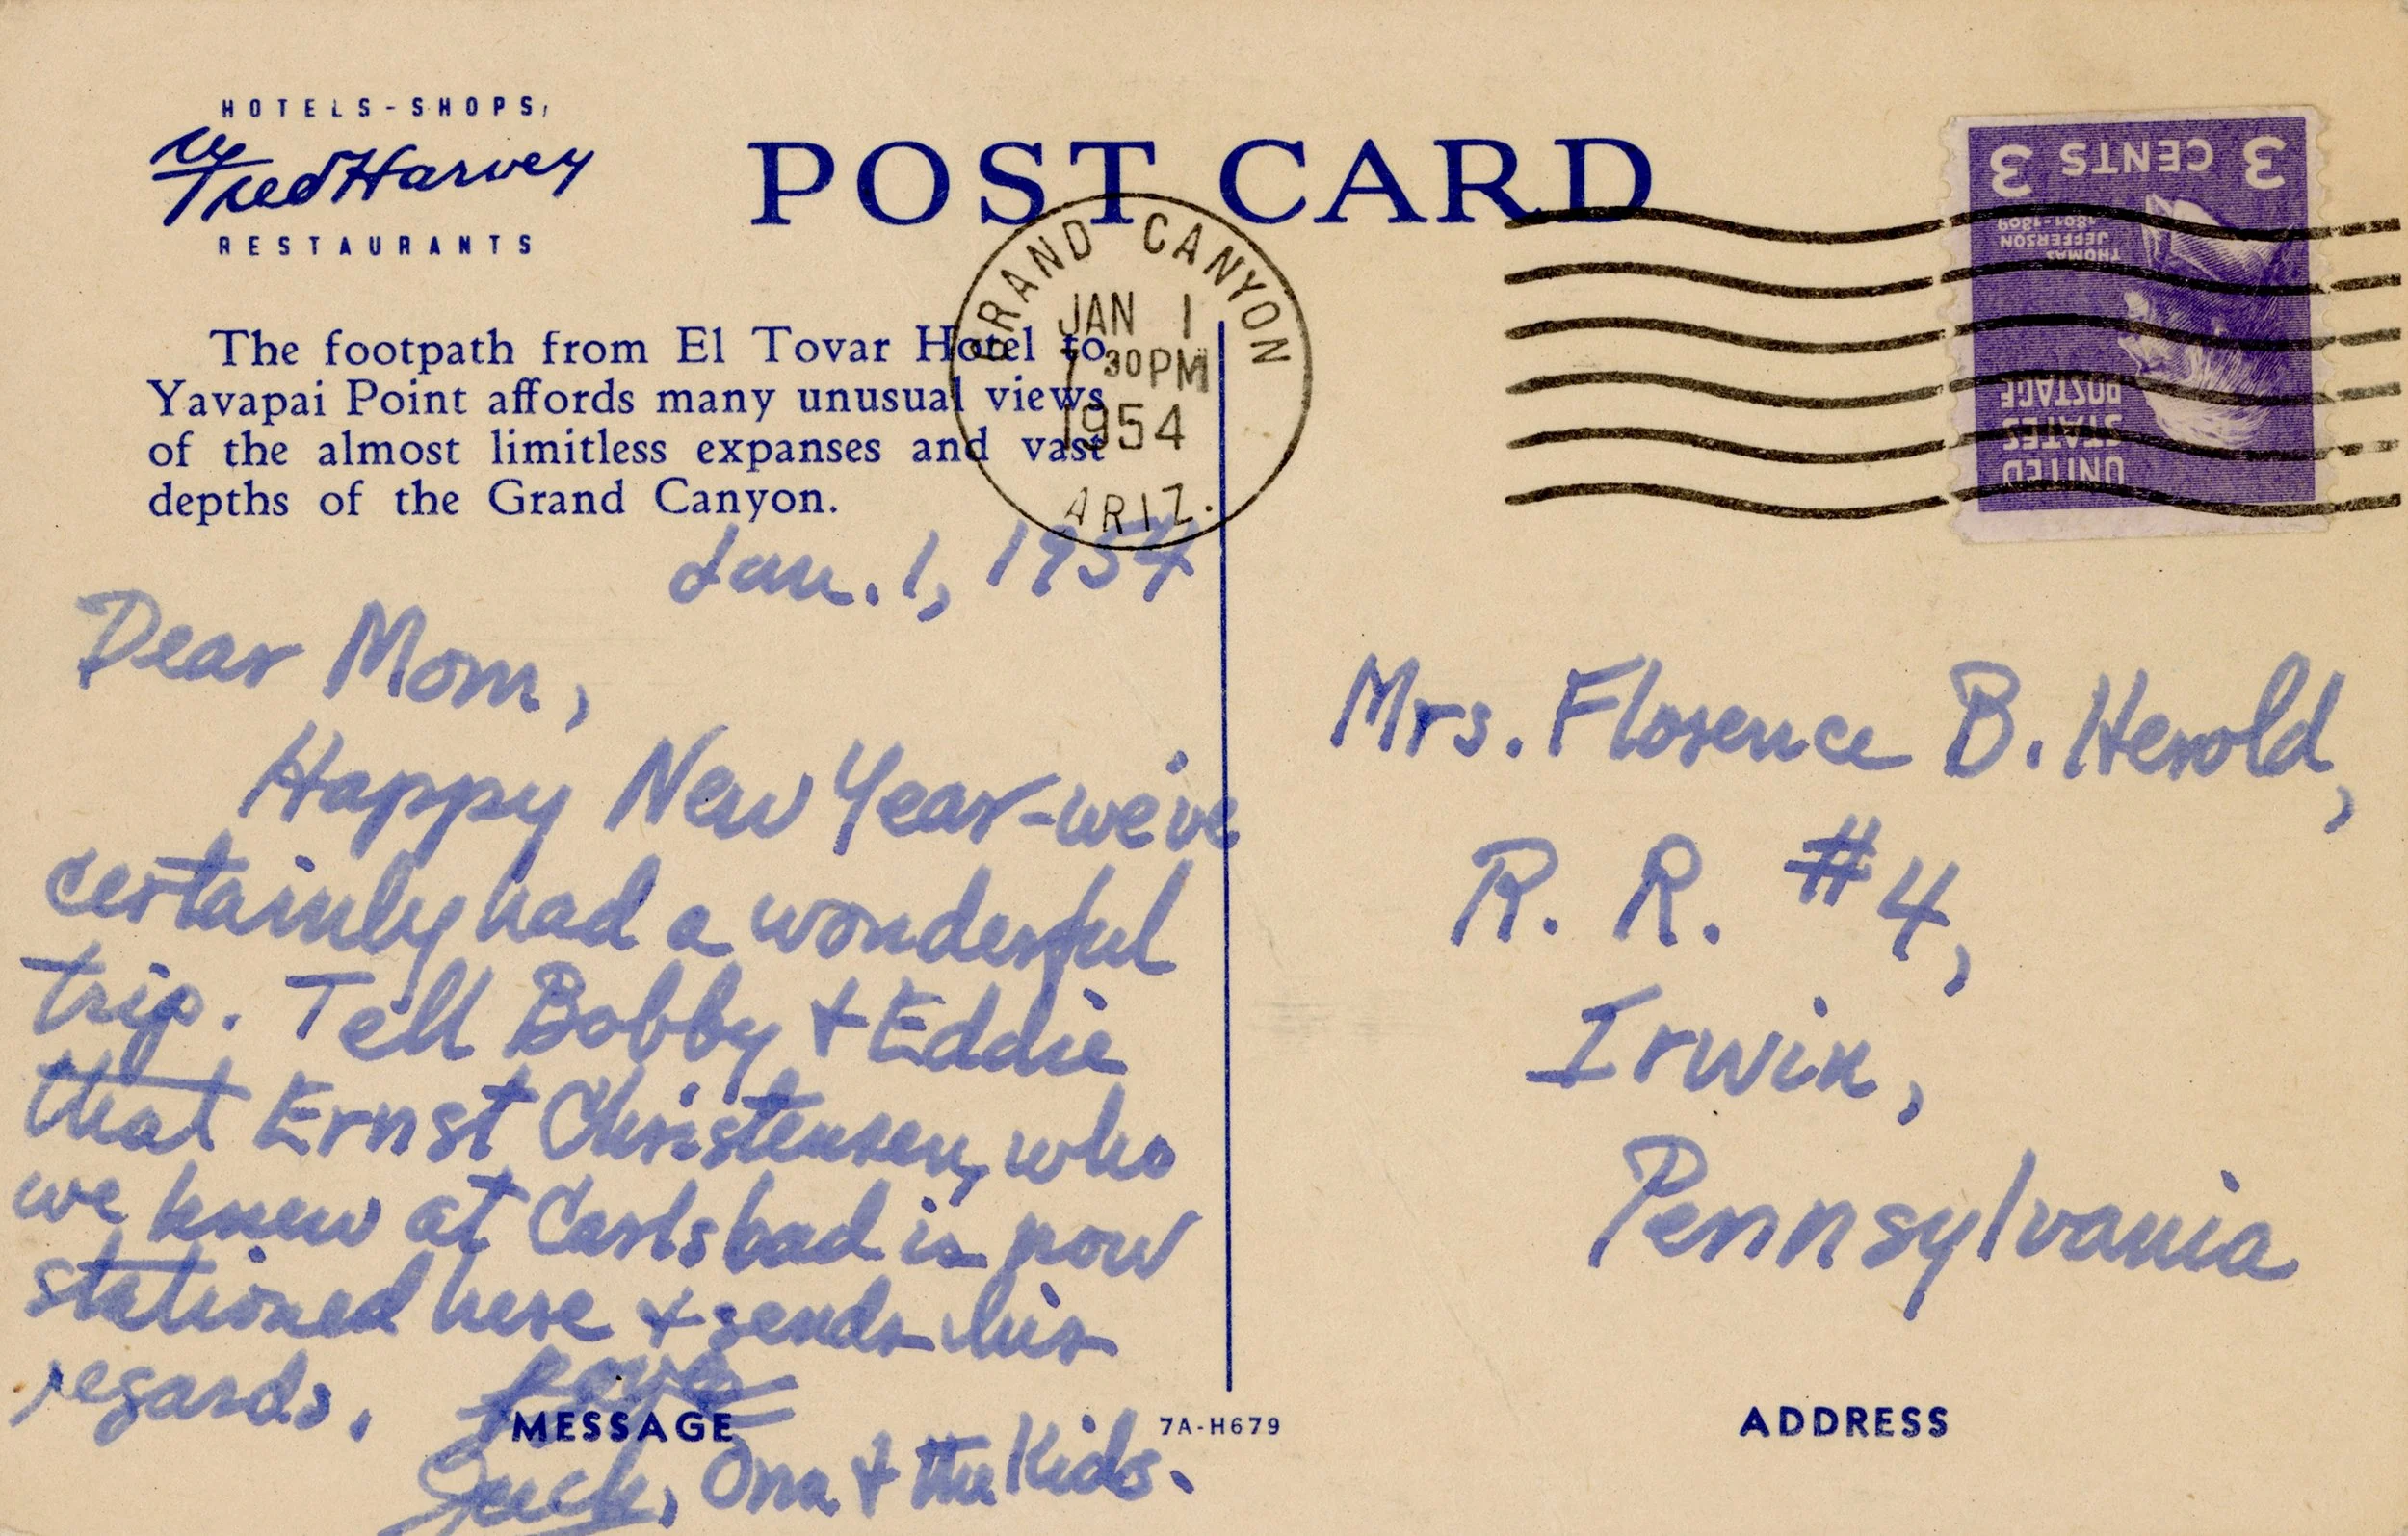 HOTELS-SHOPS,
Fred Harvey
RESTAURANTS
POST CARD
The footpath from El Tovar Hotel to
Yavapai Point affords many unusual views
of the almost limitless expanses and vast
depths of the Grand Canyon.
GRAND CANYON
JAN 1
7 30 PM
1954
ARIZ.
3 CENTS 3
THOMAS
JEFFERSON
1801-1809
UNITED
STATES
POSTAGE
Jan. 1, 1954
Dear Mom,
Happy New Year-we've
certainly had a wonderful
trip. Tell Bobby & Eddie
that Ernst Christensen, who
we knew at Carlsbad is now
stationed here & sends his
regards. Love
Ona & the Kids.
MESSAGE
7A-H679
Mrs. Florence B. Herold,
R. R. #4,
Irwin,
Pennsylvania
ADDRESS